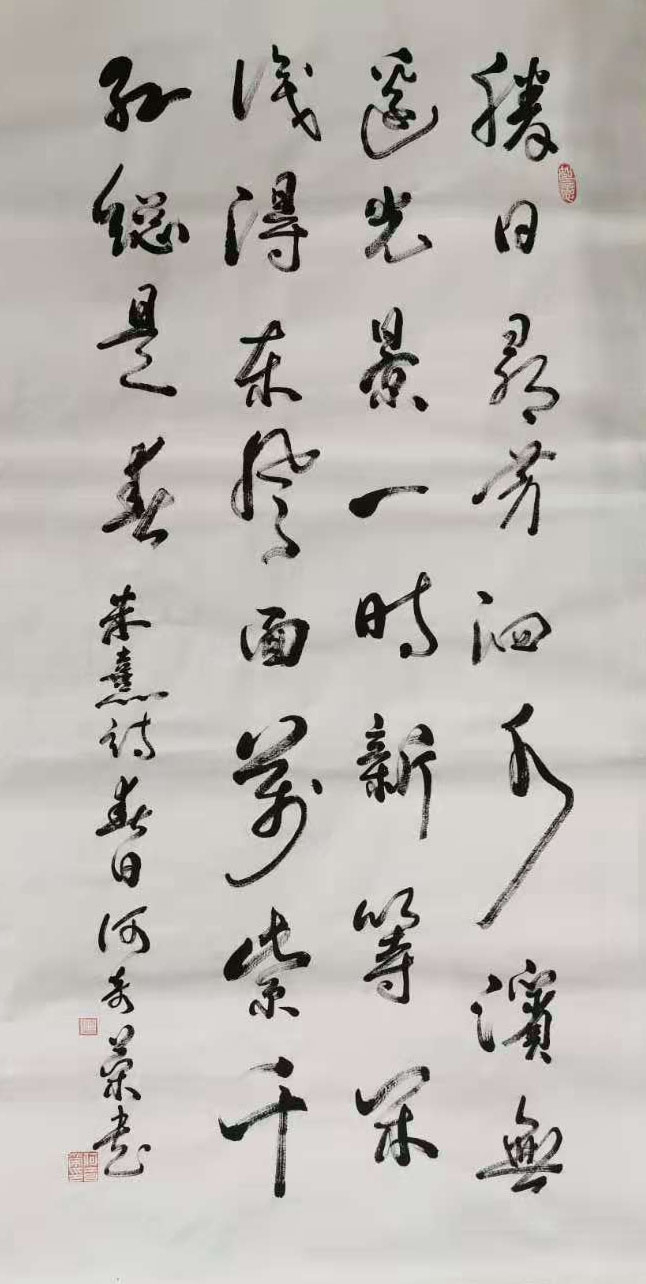 勝日尋芳泗水濱無
邊光景一時新等閑
識得東風面萬紫千
紅總是春 朱熹詩春日 何奇榮书